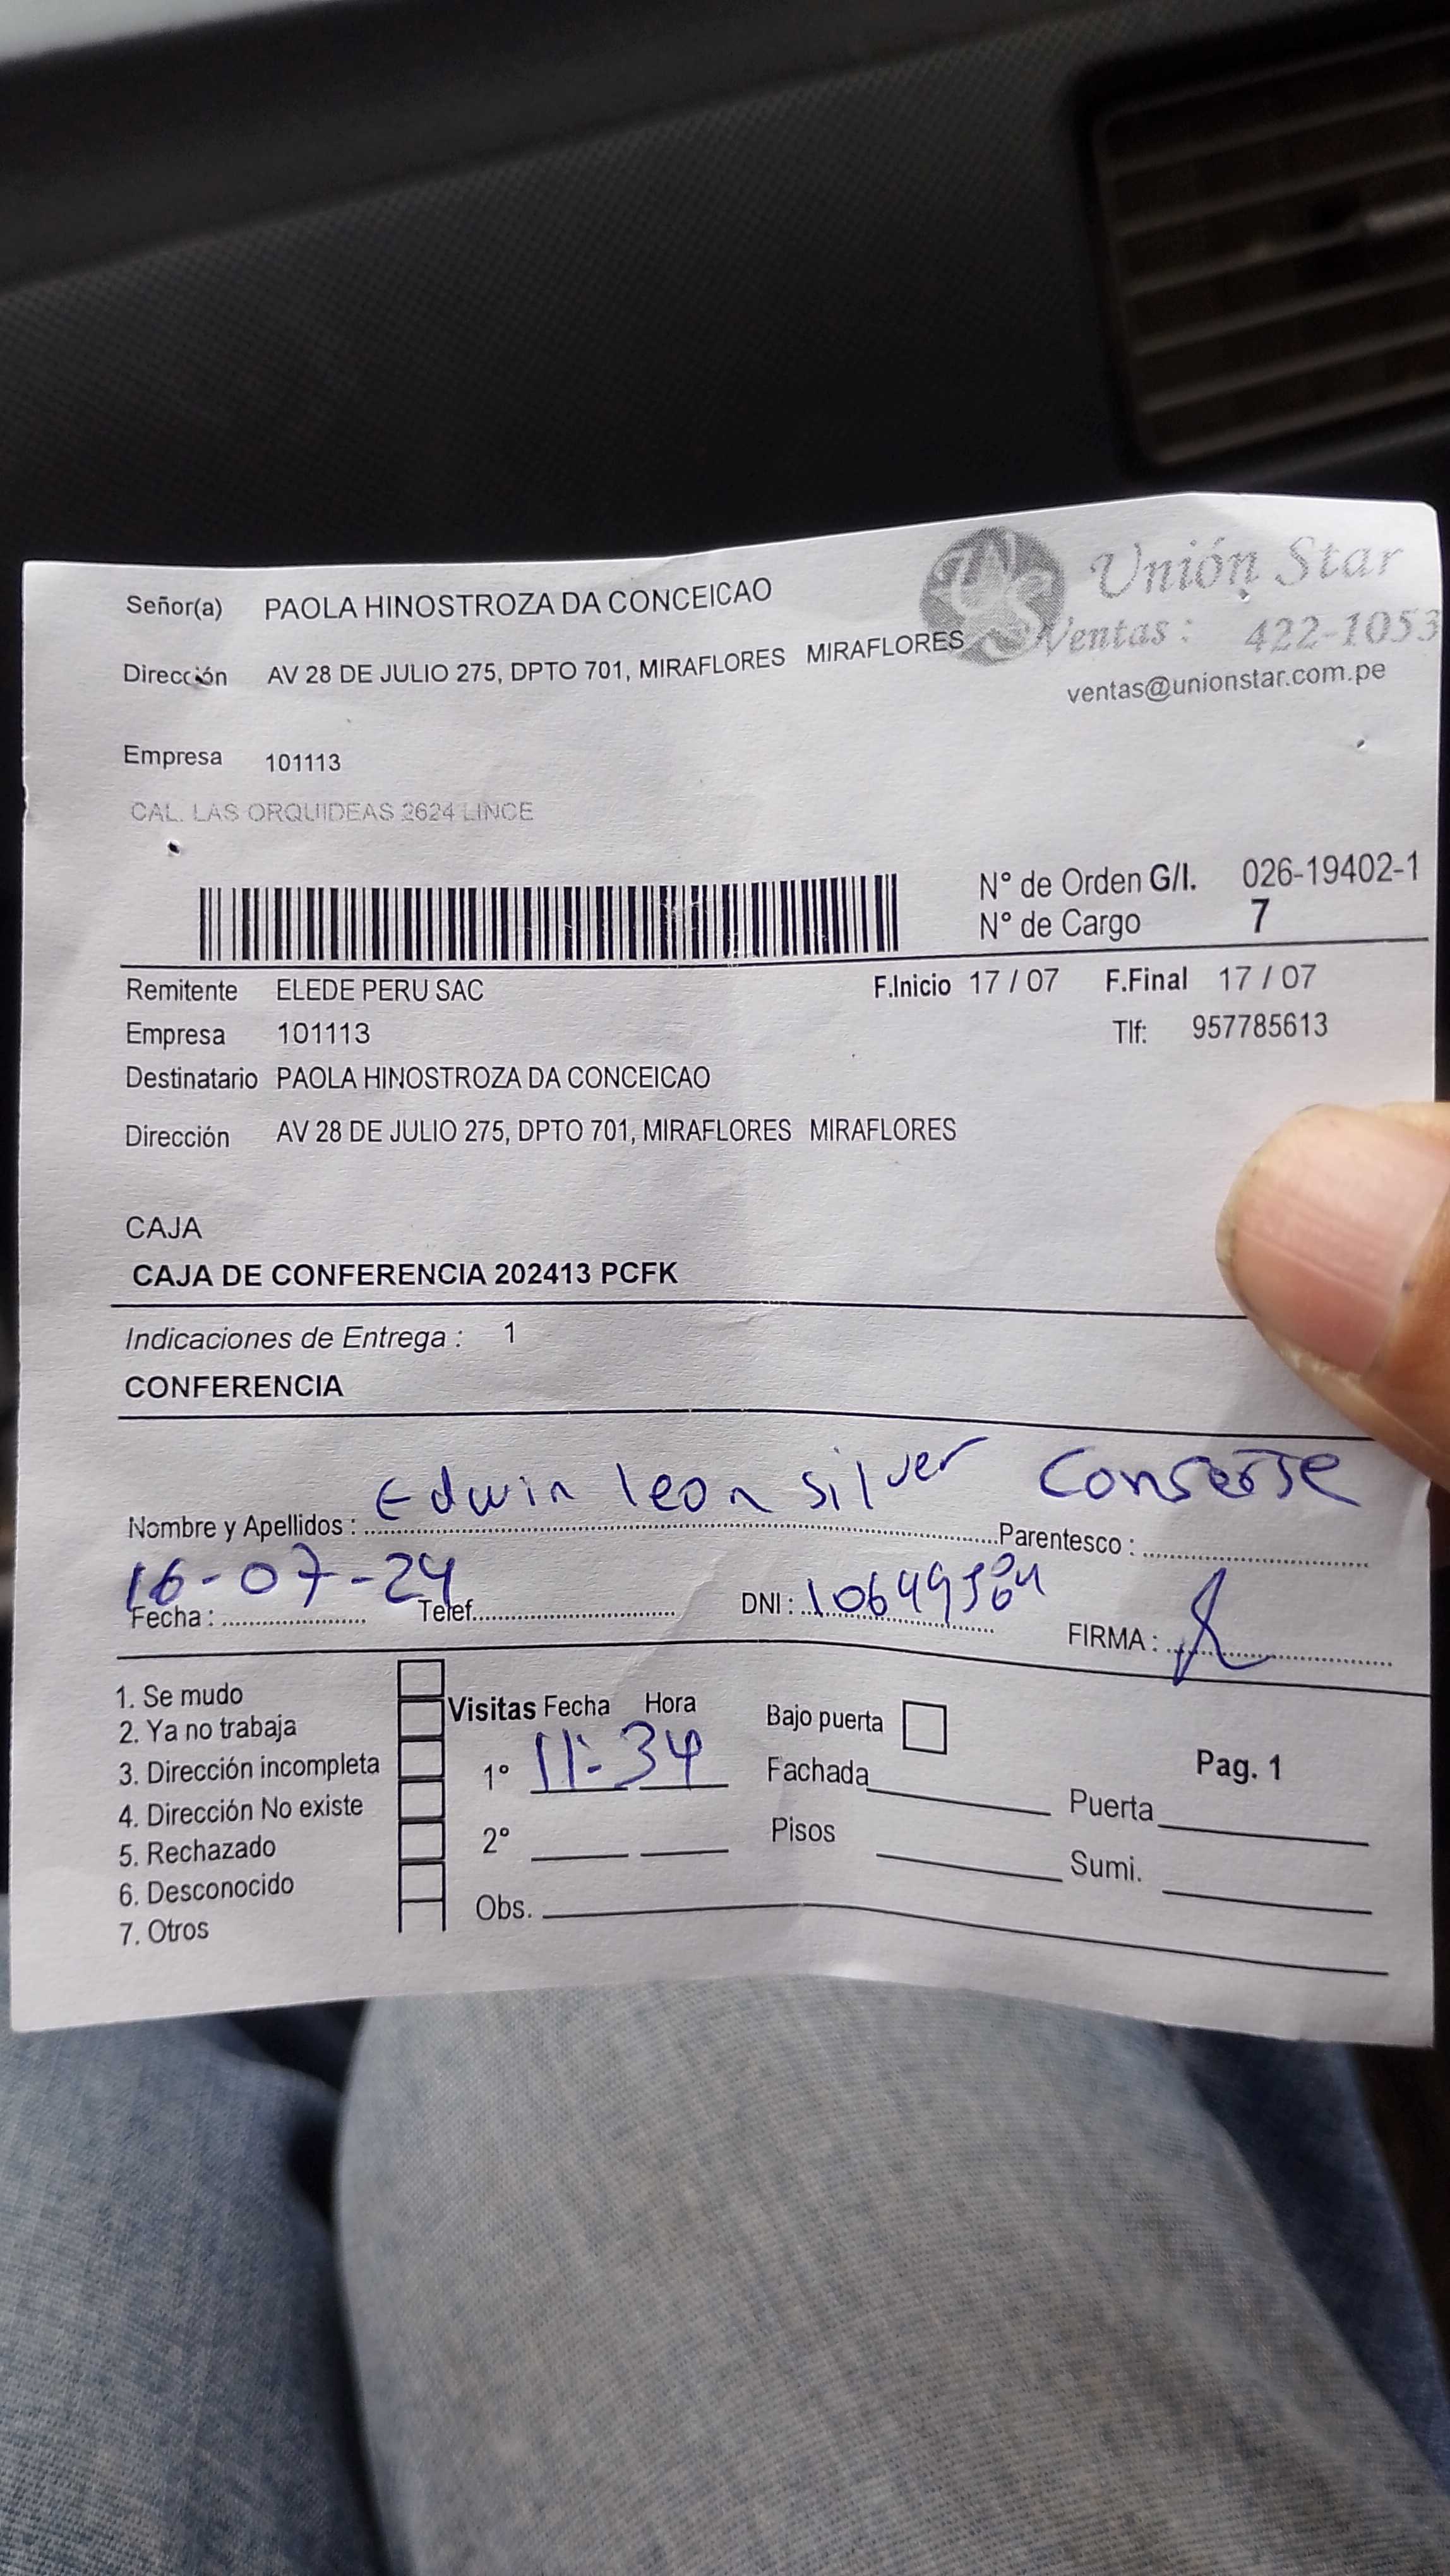 Señor(a) PAOLA HINOSTROZA DA CONCEICAO
Unión Star
Dirección AV 28 DE JULIO 275, DPTO 701, MIRAFLORES MIRAFLORES
Ventas : 422-1053
ventas@unionstar.com.pe
Empresa 101113
CAL. LAS ORQUIDEAS 2624 LINCE
N° de Orden G/I. 026-19402-1
N° de Cargo 7
Remitente ELEDE PERU SAC F.Inicio 17 / 07 F.Final 17 / 07
Empresa 101113 Tlf: 957785613
Destinatario PAOLA HINOSTROZA DA CONCEICAO
Dirección AV 28 DE JULIO 275, DPTO 701, MIRAFLORES MIRAFLORES
CAJA
CAJA DE CONFERENCIA 202413 PCFK
Indicaciones de Entrega : 1
CONFERENCIA
Nombre y Apellidos : Edwin leon silver Parentesco : Conserje
Fecha : 16-07-24 Telef. DNI : FIRMA :
1. Se mudo
2. Ya no trabaja
3. Dirección incompleta
4. Dirección No existe
5. Rechazado
6. Desconocido
7. Otros
Visitas Fecha Hora
1° 11:34
2°
Obs.
Bajo puerta
Fachada
Pisos
Pag. 1
Puerta
Sumi.